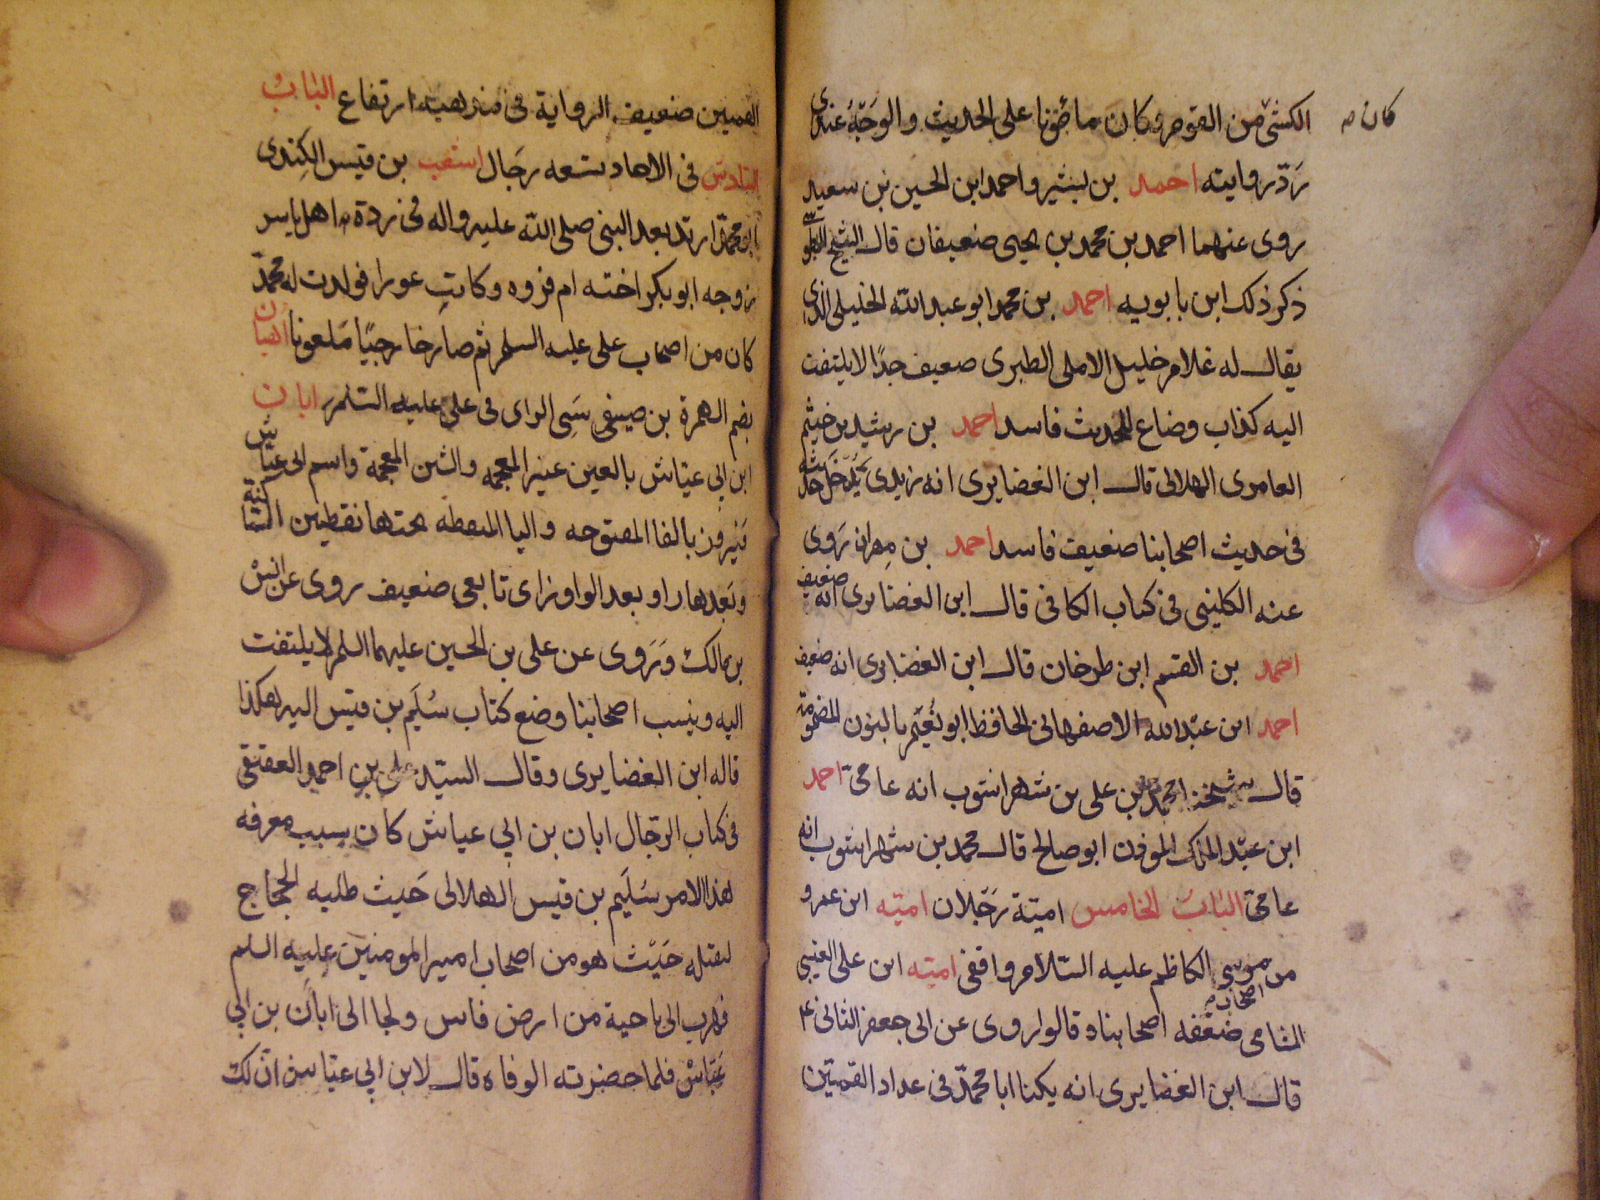 كان صح
الكشى من القوم وكان مأمونا على الحديث والوجه عندى
رد روايته احمد بن بشير واحمد ابن الحسين بن سعيد
روى عنهما احمد بن محمد بن يحيى ضعيفان قال الشيخ الطوسى
ذكر ذلك ابن بابويه احمد بن محمد ابو عبد الله الخليلى الذى
يقال له غلام خليل الاملى الطبرى ضعيف جدًا لا يلتفت
اليه كذاب وضاع للحديث فاسد احمد بن رشيد بن خيثم
العامرى الهلالى قال ابن الغضايرى انه زيدى يُدخَل حديثه
فى حديث اصحابنا ضعيف فاسد احمد بن مهران رَوى
عنه الكلينى فى كتاب الكافى قال ابن الغضايرى انه ضعيف
احمد بن القسم ابن طرخان قال ابن الغضايرى انه ضعيف
احمد ابن عبد الله الاصفهانى الحافظ ابو نُعَيْم بالنون المضمومة
قال شيخنا محمد بن على بن شهراشوب انه عامى احمد
ابن عبد الملك الموذن ابو صالح قال محمد بن شهراشوب انه
عامى الباب الخامس امية رَجُلان امية ابن عمرو
من اصحاب صح موسى الكاظم عليه السلام واقفى امية ابن على القيسى
الشامى ضعّفه اصحابنا وقالوا روى عن ابى جعفر الثانى ع
قال ابن الغضايرى انه يكنا ابا محمّد فى عداد القميين
القميين ضعيف الرواية فى مذهبه ارتفاع الباب
السادس فى الاحاد تسعه رجَال اشعث بن قيس الكِندى
ابو محمّد ارتد بعد النبى صلى الله عليه واله فى ردة اهل ياسر
زوجه ابو بكر اخته ام فروه وكانت عورا فولدت له محمّد
كان من اصحاب على عليه السلم ثم صار خارجيًا مَلعونا
بضم الهمزة بن صيفى سَىِ الراى فى على عليه السلم ابان
ابن ابى عياش بالعين غير المعجمه والشين المعجمة واسم ابى عياش
فَيْروز بالفا المفتوحه واليا المنقطه تحتها نقطين
وبَعدها را وبعد الواو زاى تابعى ضعيف روى عن انس
بن مالك وَرَوى عن على بن الحسين عليهما السلم لا يلتفت
اليه وينسب اصحابنا وضع كتاب سُلَيم بن قيس اليه هكذا
قاله ابن الغضايرى وقال السيّد على بن احمد العقيقى
فى كتاب الرّجال ابان بن ابي عياش كان سبب معرفه
هذا الامر سُلَيم بن قيس الهلالى حَيث طلبه الحجاج
ليقتله حَيْث هو من اصحاب امير المومنين عليه السلم
فهرب الى ناحية من ارض فاس ولجا الى ابان بن ابي
عَيّاش فلما حضرته الوفاه قال لابن ابي عيّاش ان لك